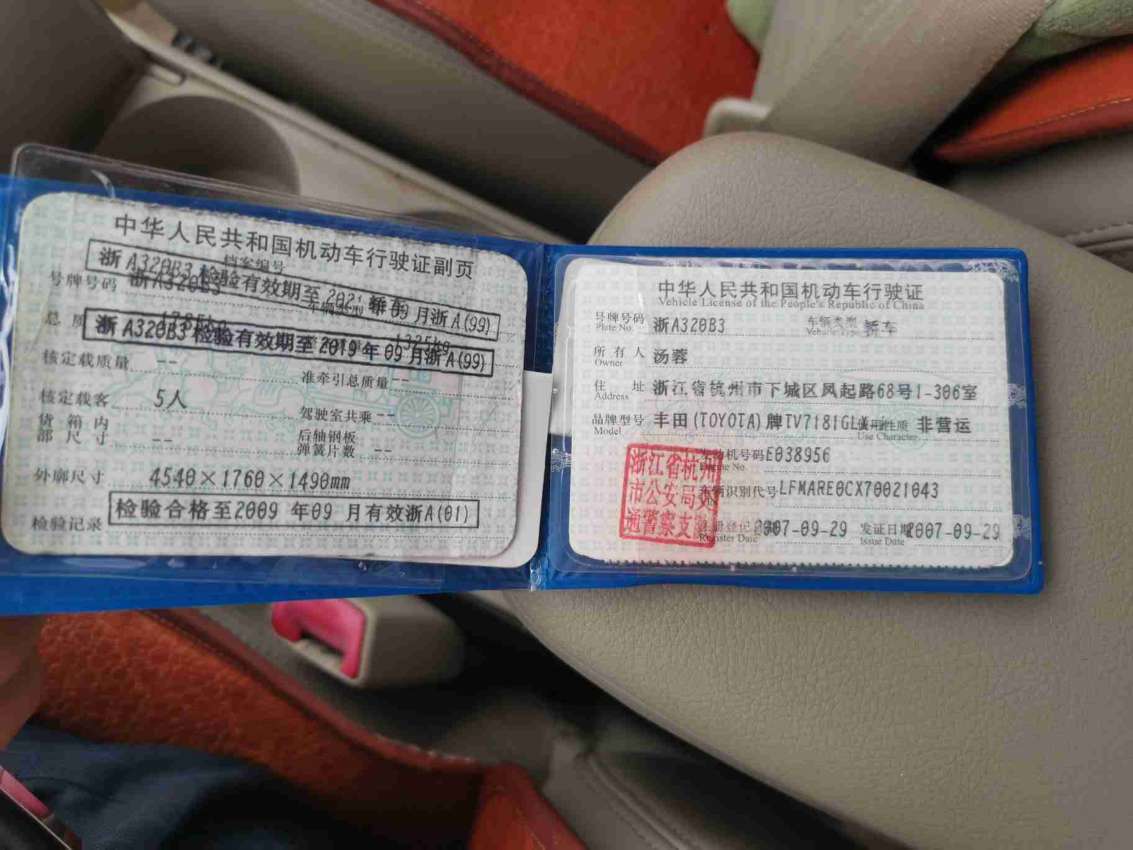 中华人民共和国机动车行驶证副页
档案编号
浙A320B3检验有效期至2021年09月浙A(99)
号牌号码 浙A320B3 车辆类型 轿车
总质
浙A320B3检验有效期至2019年09月浙A(99)
1325kg
核定载质量 --
准牵引总质量 --
核定载客 5人
驾驶室共乘 --
货箱内部尺寸 --
后轴钢板弹簧片数 --
外廓尺寸 4540×1760×1490mm
检验记录 检验合格至2009年09月有效浙A(01)
中华人民共和国机动车行驶证
Vehicle License of the People's Republic of China
号牌号码 浙A320B3 车辆类型 轿车
Plate No.
所有人 汤蓉
Owner
住址 浙江省杭州市下城区凤起路68号1-306室
Address
品牌型号 丰田(TOYOTA)牌TV7181GL 使用性质 非营运
Model Use Character
浙江省杭州市公安局交通警察支队
发动机号码 E038956
Engine No.
车辆识别代号 LFMARE0CX70021043
注册登记日期 2007-09-29 发证日期 2007-09-29
Register Date Issue Date